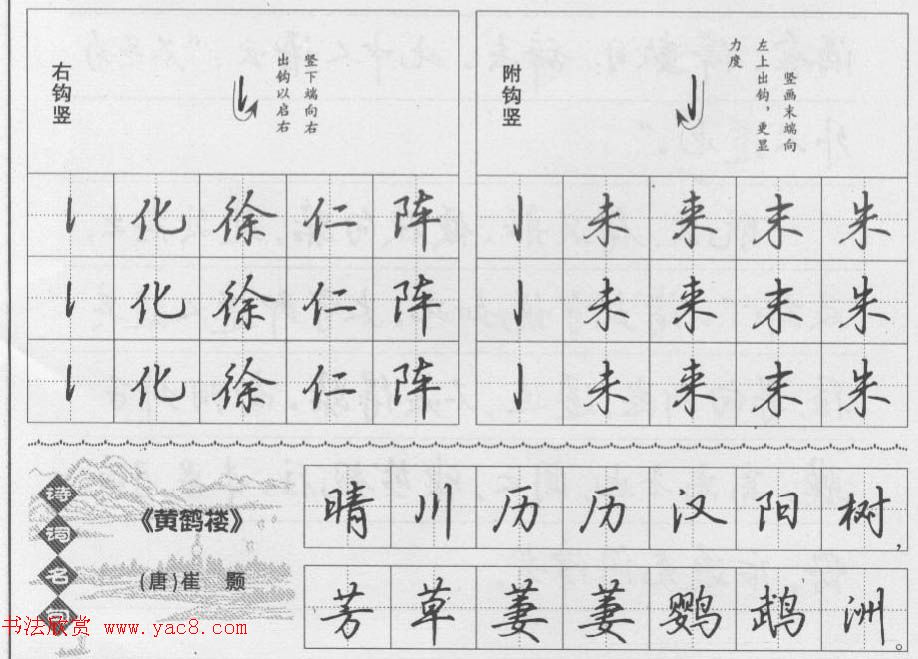 右钩竖
竖下端向右
出钩以启右
附钩竖
竖画末端向
左上出钩，更显
力度
化徐仁阵
未来末朱
化徐仁阵
未来末朱
化徐仁阵
未来末朱
诗词名句
《黄鹤楼》
(唐)崔 颢
晴川历历汉阳树，
芳草萋萋鹦鹉洲。
书法欣赏 www.yac8.com